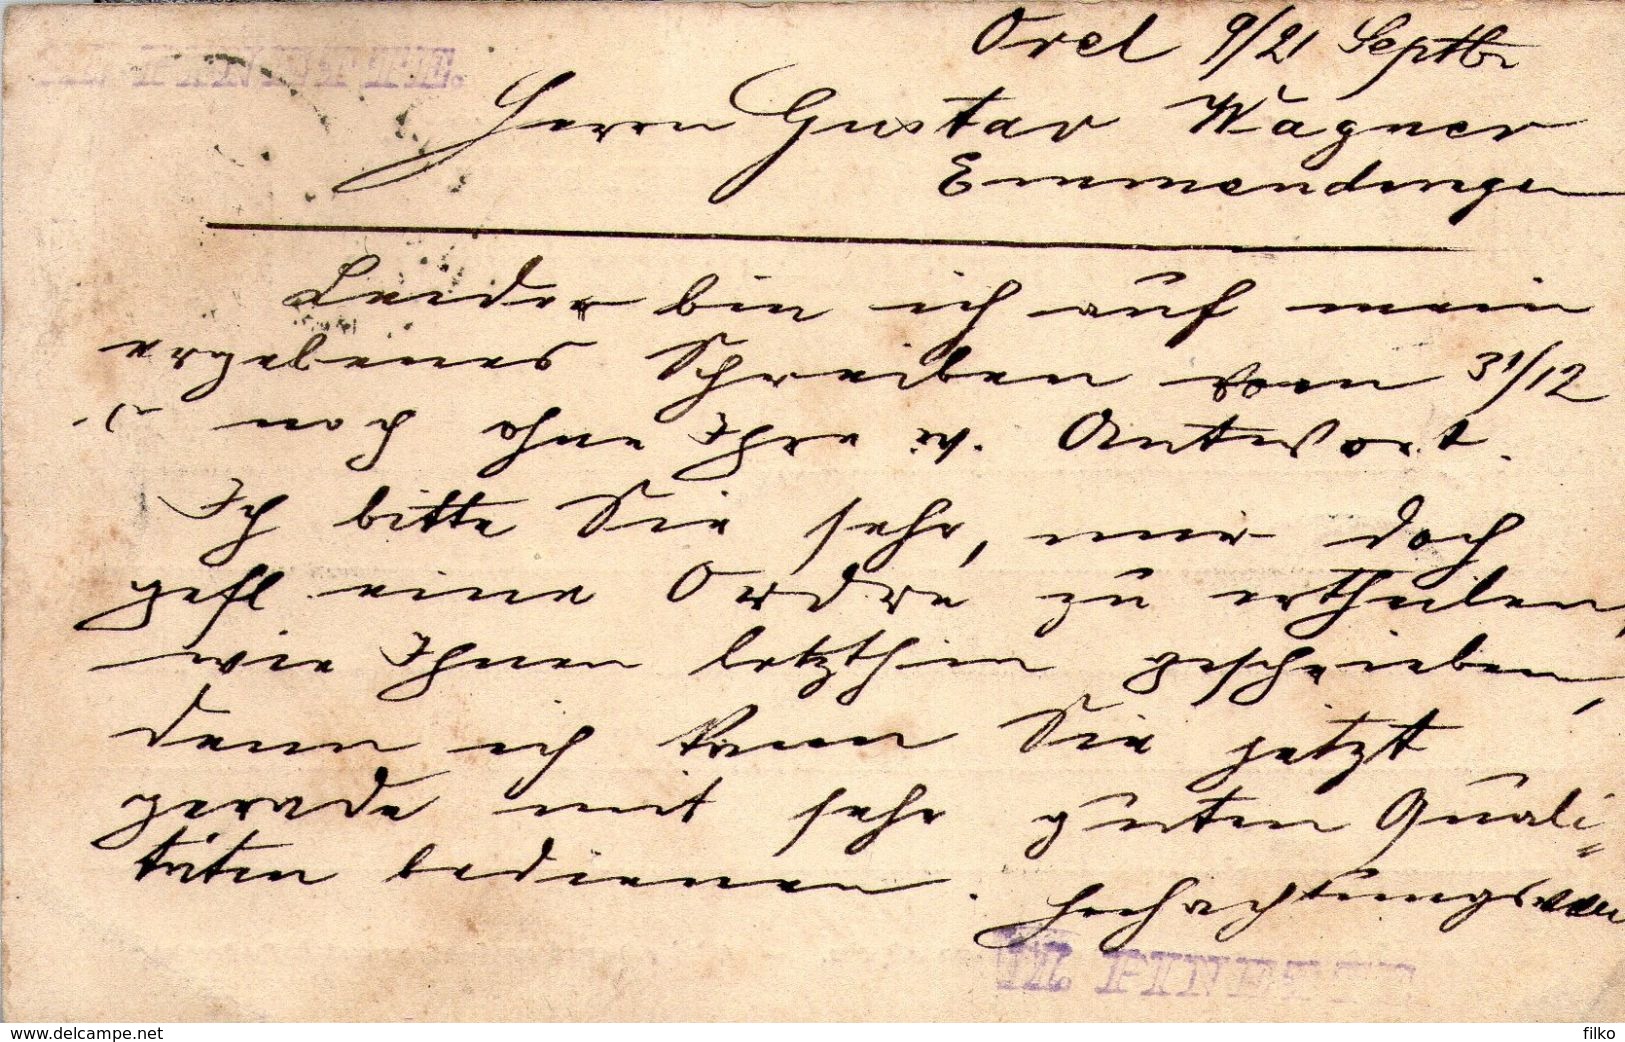 Orel 9/21 Septbr
Herrn Gustav Wagner
Emmendingen
Leider bin ich auf mein
ergebenes Schreiben vom 31/12
noch ohne Ihre w. Antwort.
Ich bitte Sie sehr, mir doch
gefl. eine Ordre zu ertheilen,
wie Ihnen letzthin geschrieben,
denn ich kann Sie jetzt
gerade mit sehr guten Quali=
täten bedienen.
Hochachtungsvoll
M. FINE
www.delcampe.net
filko